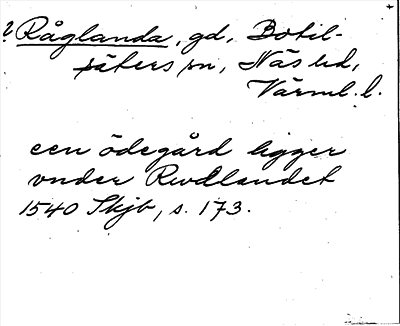 ? Råglanda, gd, Botil-
säters sn, Näs hd,
Värml. l.
een ödegård ligger
vnder Rwdlandet
1540 Skjb, s. 173.